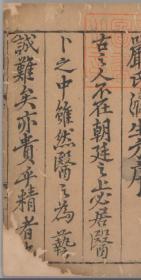 嚴氏濟生方序
古之人不在朝廷之上必居醫
卜之中雖然醫之為藝
誠難矣亦貴乎精者也